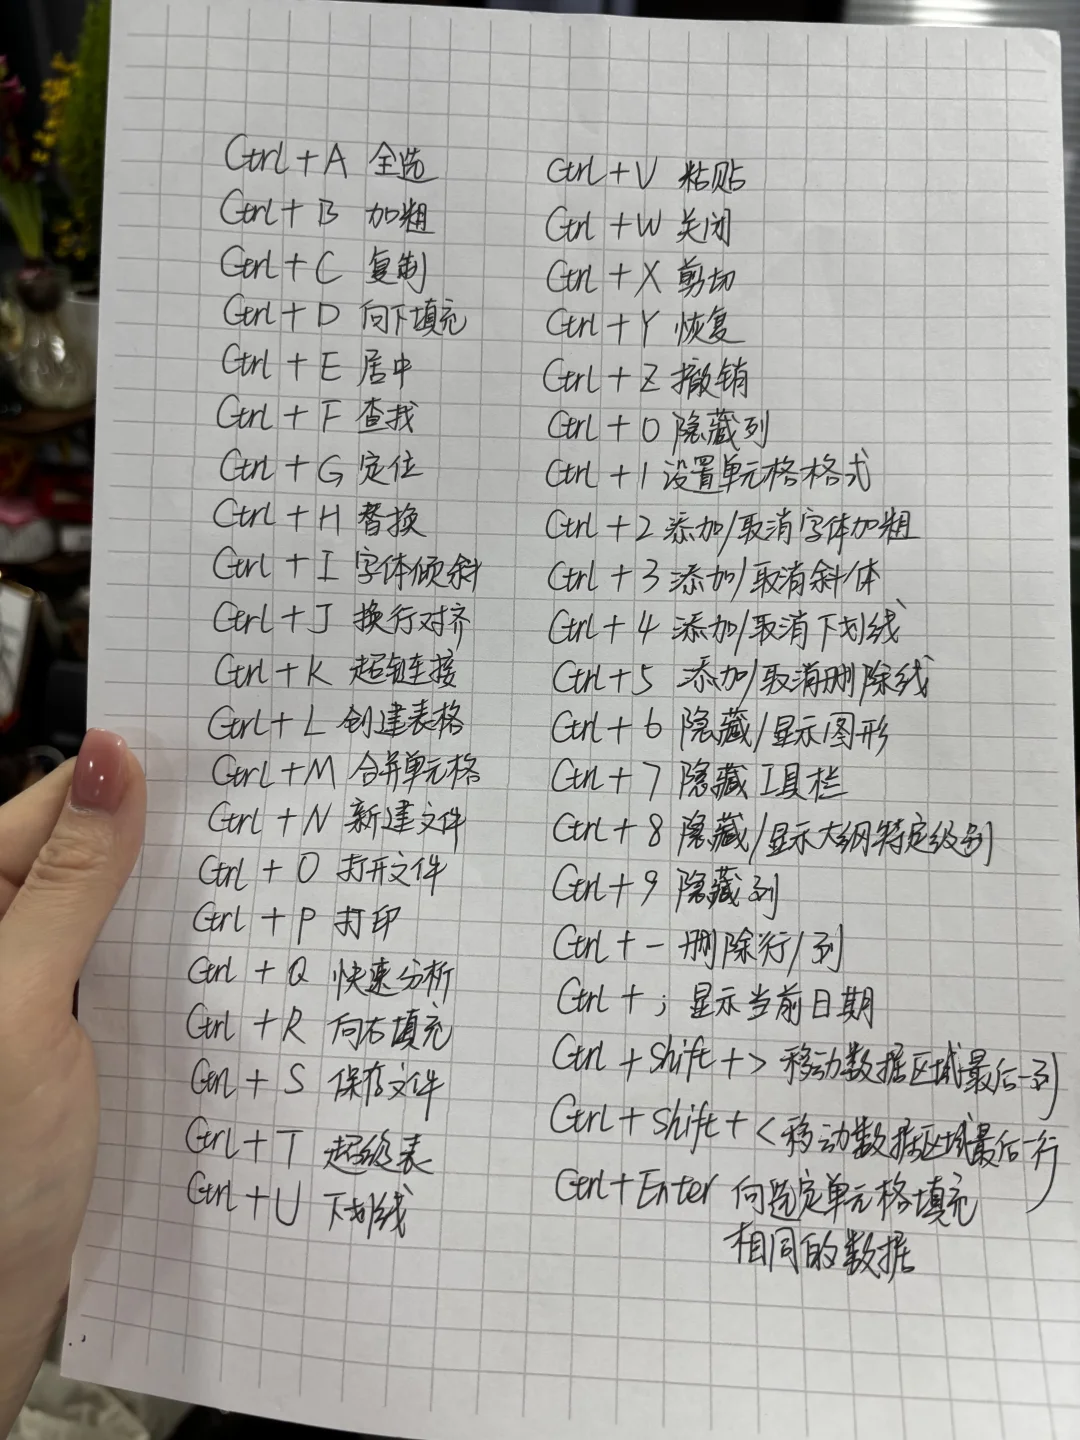 Ctrl + A 全选
Ctrl + B 加粗
Ctrl + C 复制
Ctrl + D 向下填充
Ctrl + E 居中
Ctrl + F 查找
Ctrl + G 定位
Ctrl + H 替换
Ctrl + I 字体倾斜
Ctrl + J 换行对齐
Ctrl + K 超链连接
Ctrl + L 创建表格
Ctrl + M 合并单元格
Ctrl + N 新建文件
Ctrl + O 打开文件
Ctrl + P 打印
Ctrl + Q 快速分析
Ctrl + R 向右填充
Ctrl + S 保存文件
Ctrl + T 超级表
Ctrl + U 下划线
Ctrl + V 粘贴
Ctrl + W 关闭
Ctrl + X 剪切
Ctrl + Y 恢复
Ctrl + Z 撤销
Ctrl + 0 隐藏列
Ctrl + 1 设置单元格格式
Ctrl + 2 添加/取消字体加粗
Ctrl + 3 添加/取消斜体
Ctrl + 4 添加/取消下划线
Ctrl + 5 添加/取消删除线
Ctrl + 6 隐藏/显示图形
Ctrl + 7 隐藏工具栏
Ctrl + 8 隐藏/显示大纲特定级别
Ctrl + 9 隐藏列
Ctrl + - 删除行/列
Ctrl + ; 显示当前日期
Ctrl + Shift + > 移动数据区域最后一列
Ctrl + Shift + < 移动数据区域最后一行
Ctrl + Enter 向选定单元格填充
相同的数据